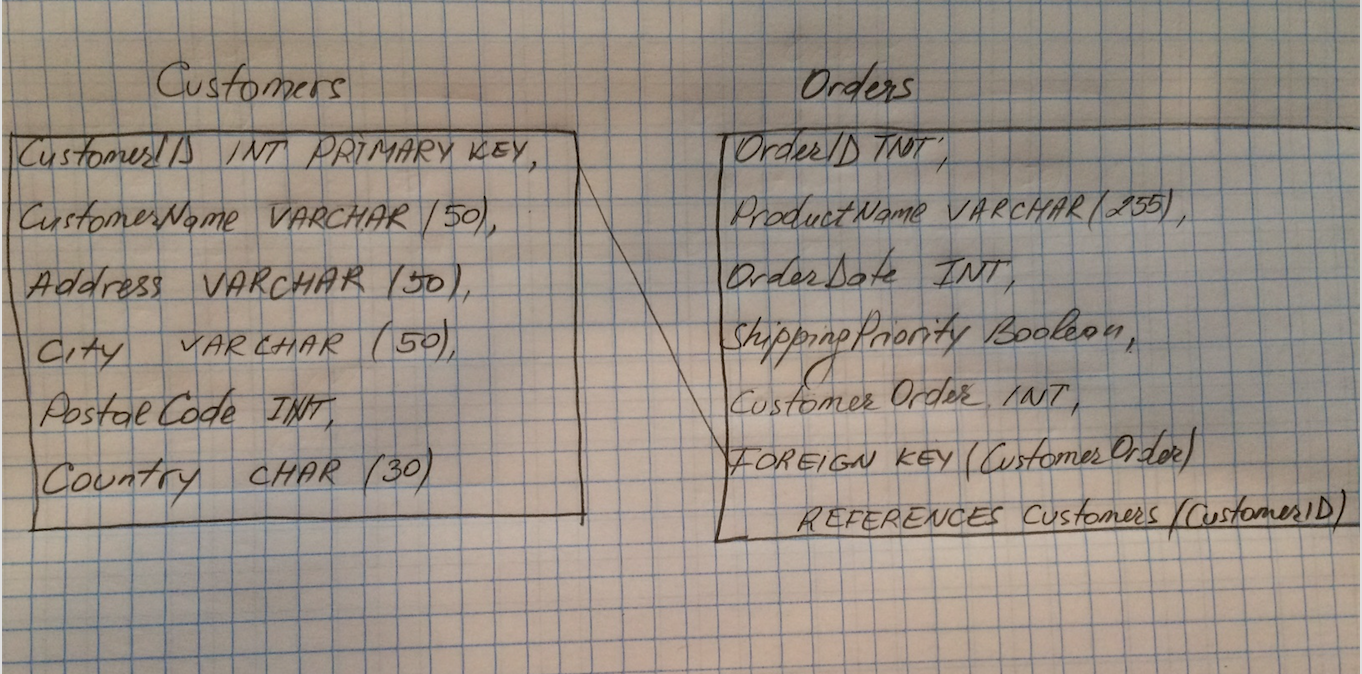 Customers
CustomerID INT PRIMARY KEY,
CustomerName VARCHAR (50),
Address VARCHAR (50),
City VARCHAR (50),
Postal Code INT,
Country CHAR (30)
Orders
OrderID INT,
ProductName VARCHAR (255),
OrderDate INT,
ShippingPriority Boolean,
Customer Order INT,
FOREIGN KEY (CustomerOrder)
REFERENCES Customers (CustomerID)